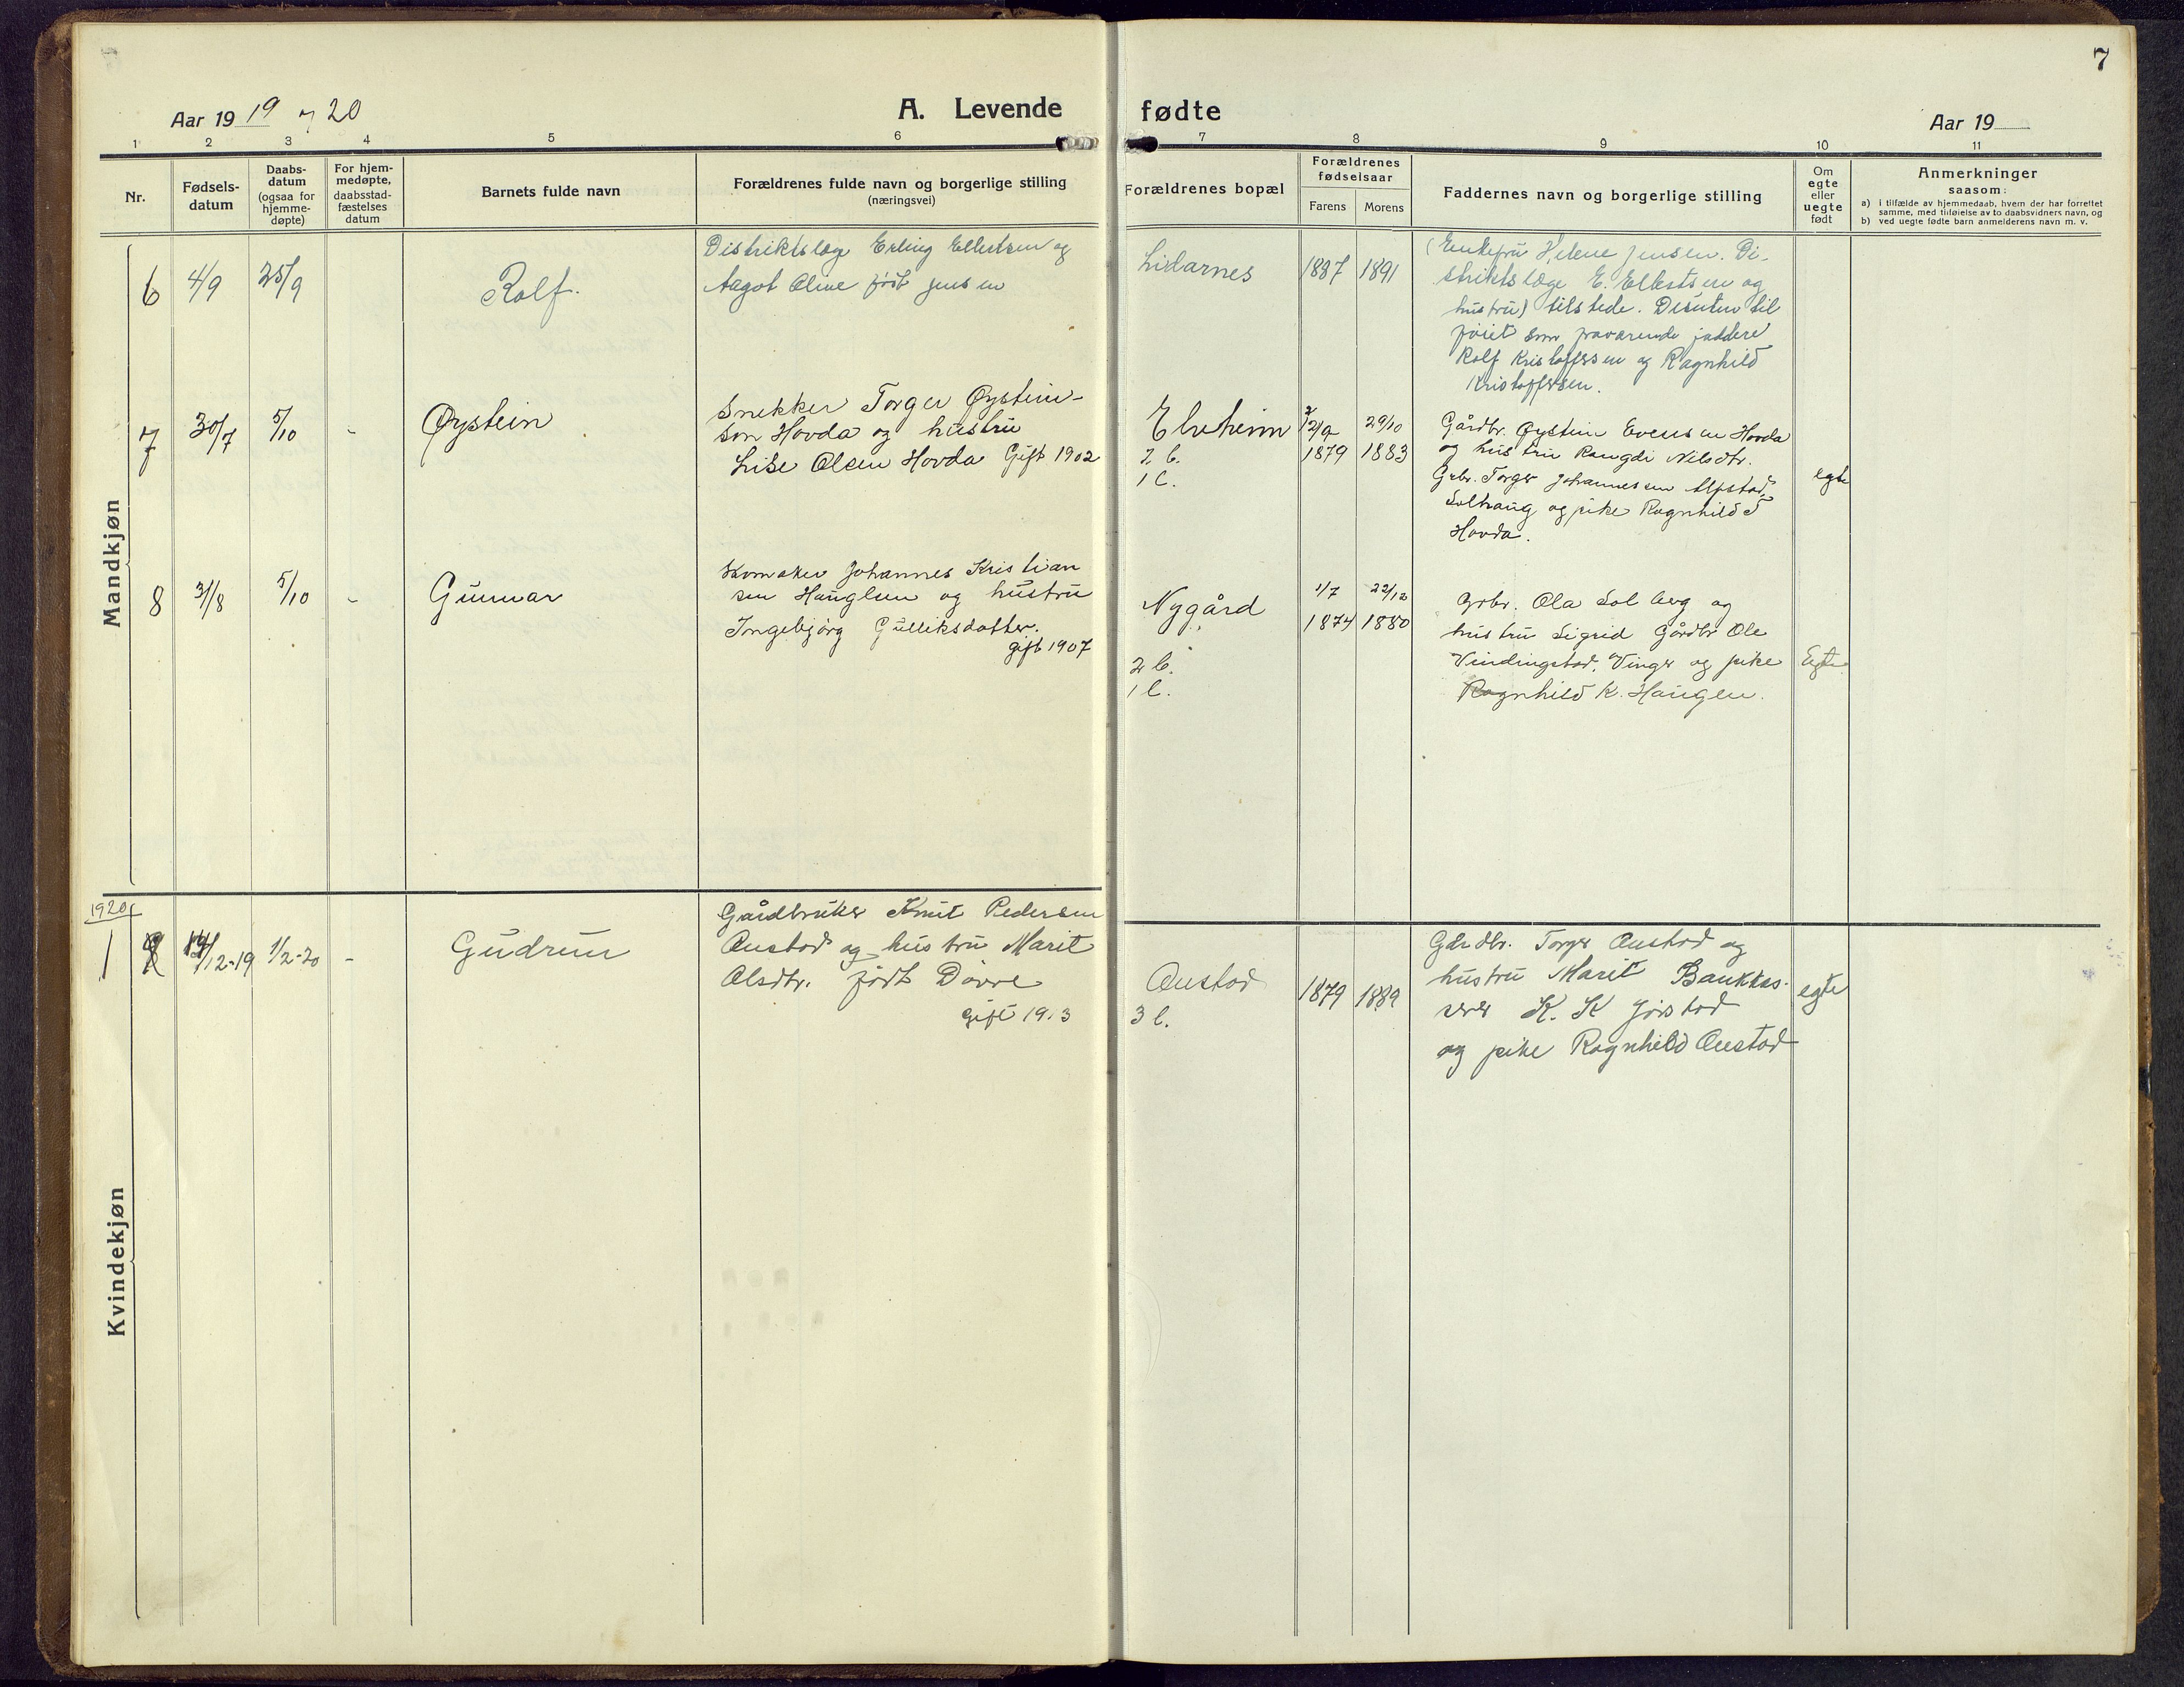 7
Aar 19 19 og 20
A. Levende fødte
Aar 19
1 2 3 4 5 6 7 8 9 10 11
Nr.
Fødsels-
datum
Daabs-
datum
(ogsaa for
hjemme-
døpte)
For hjem-
medøpte,
daabsstad-
fæstelses
datum
Barnets fulde navn
Forældrenes fulde navn og borgerlige stilling
(næringsvei)
Forældrenes bopæl
Forældrenes
fødselsaar
Farens Morens
Faddernes navn og borgerlige stilling
Om
egte
eller
uegte
født
Anmerkninger
saasom:
a) i tilfælde av hjemmedaab, hvem der har forrettet
samme, med tilføielse av to daabsvidners navn, og
b) ved uegte fødte barn anmelderens navn m. v.
Mandkjøn
6 4/9 25/9 Rolf.
Distriktslæge Erling Ellertsen og
Aagot Oline født Jensen
Lidarnes 1887 1891
(Enkefru Helene Jensen. Di-
striktslæge E. Ellertsen og
hustru) tilstede. Desuten til
føiet som fraværende faddere
Rolf Kristoffersen og Ragnhild
Kristoffersen.
7 30/7 5/10 - Øystein
Snekker Torger Øystein-
son Hovda og hustru
Lise Olsen Hovda Gift 1902
Elvheim
7 b.
1 l.
12/9 29/10
1879 1883
Gårdbr. Øystein Evensen Hovda
og hustru Rangdi Nilsdtr.
Grbr. Torger Johannessen Alfstad,
Solhaug og pike Ragnhild T
Hovda.
egte
8 31/8 5/10 - Gunnar
Skomaker Johannes Kristian
sen Hauglien og hustru
Ingebjörg Gulliksdatter.
gift 1907
Nygård
2 b.
1 l.
1/7 22/12
1874 1880
Grbr. Ola Solberg og
hustru Sigrid Gårdbr Ole
Vindingstad, Vinger og pike
Ragnhild K. Haugen.
Egte
Kvindekjøn
1920
1 14/12-19 1/2-20 - Gudrun
Gårdbruker Knut Pedersen
Austad og hustru Marit
Olsdtr. født Dövre
gift 1913
Austad
3 l.
1879 1889
Gårdbr. Torger Austad og
hustru Marit Bankkas-
serer K. K Jørstad
og pike Ragnhild Austad
egte